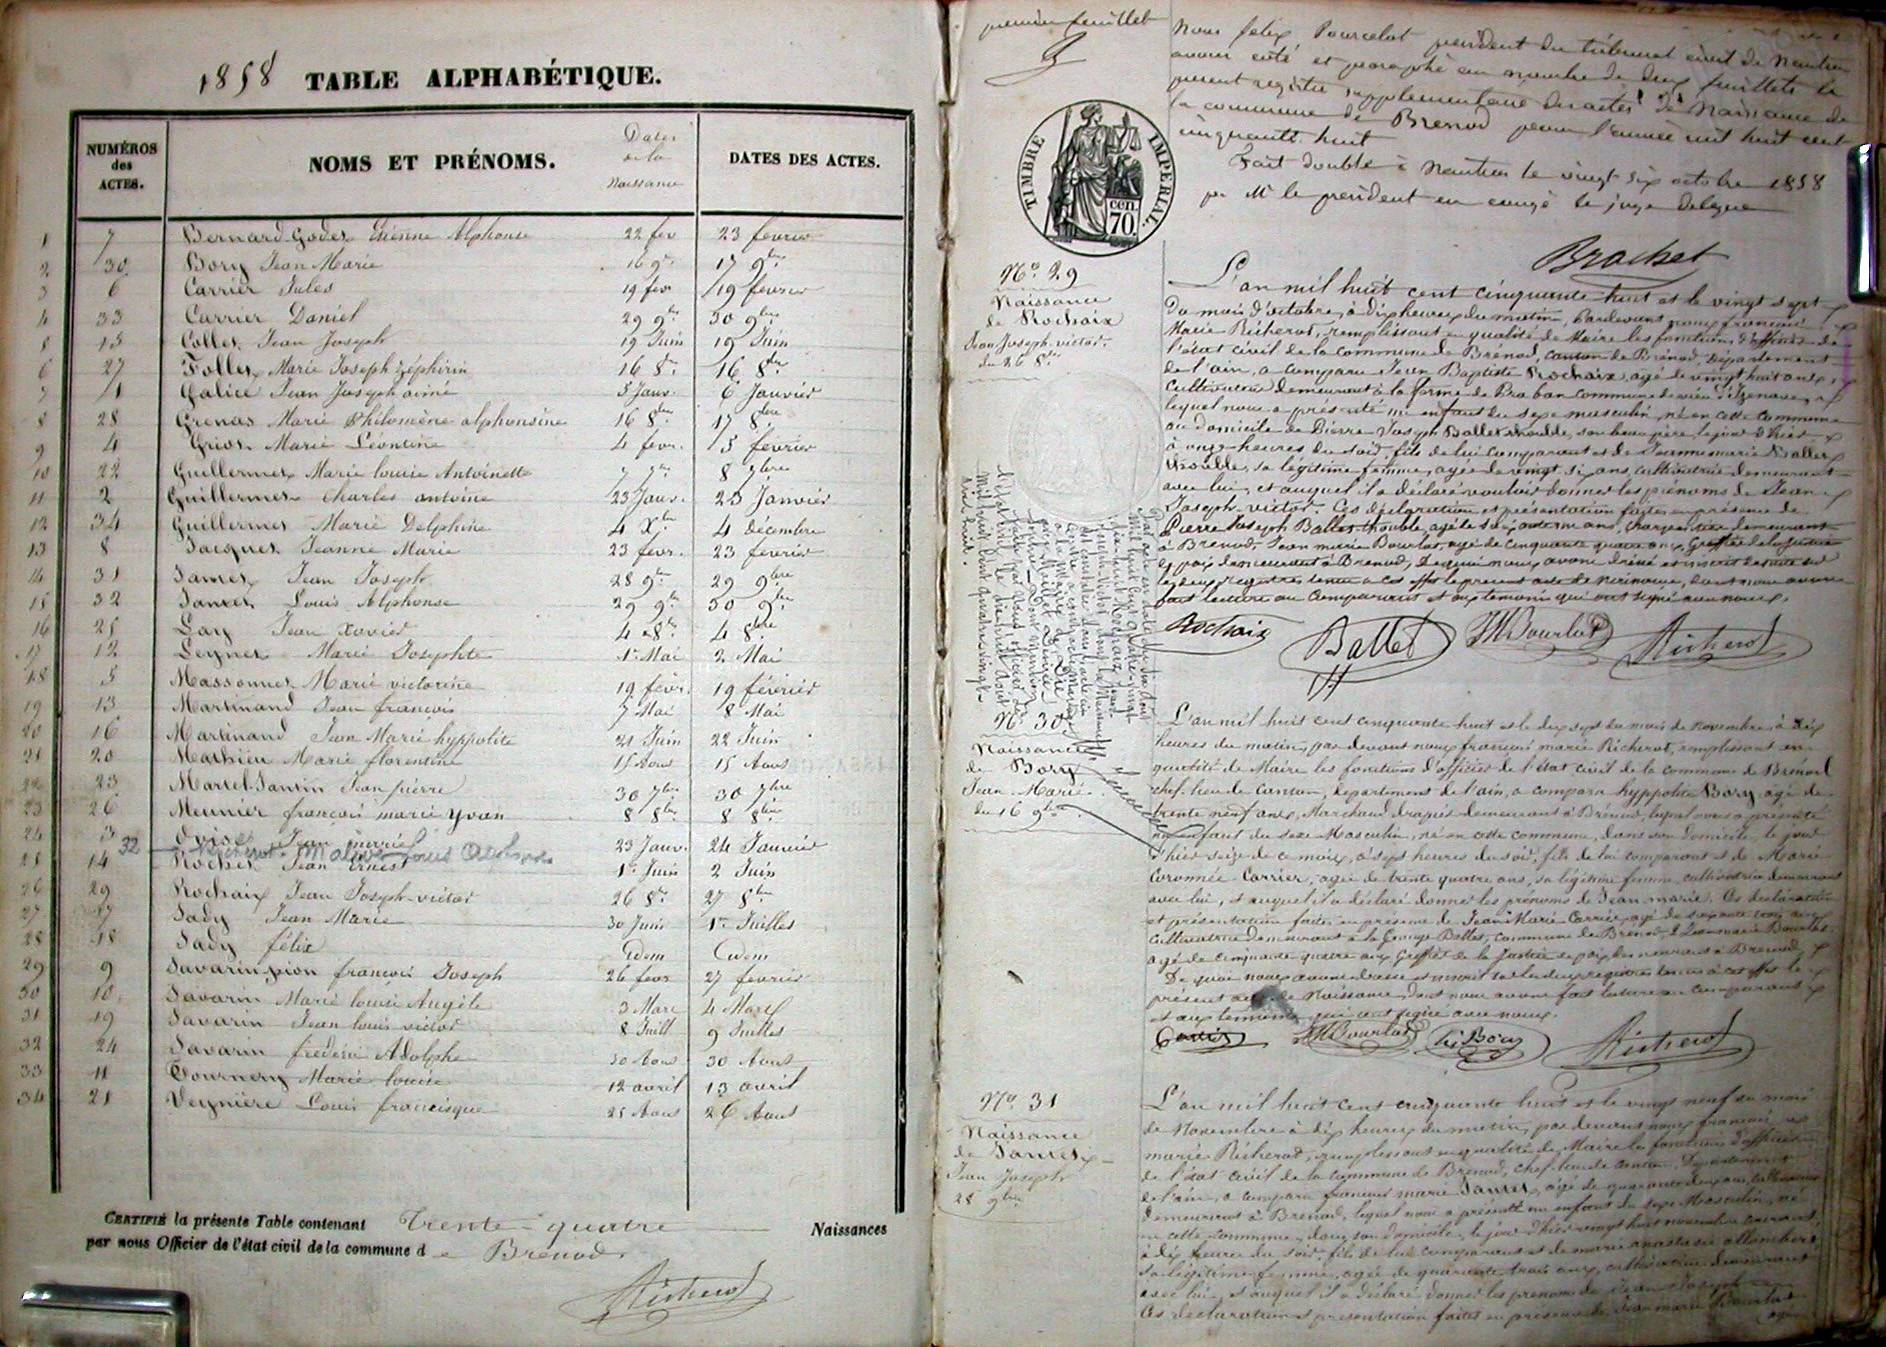 1858 TABLE ALPHABÉTIQUE.
NUMÉROS des ACTES.
NOMS ET PRÉNOMS.
Dates de la Naissance
DATES DES ACTES.
1 7 Bernard-Godet Etienne Alphonse 22 fev 23 fevrier
2 30 Bory Jean Marie 16 9bre 17 9bre
3 6 Carrier Jules 19 fevr 19 fevrier
4 33 Carrier Daniel 29 9bre 30 9bre
5 15 Collet Jean Joseph 19 Juin 19 Juin
6 27 Follet Marie Joseph Zéphirin 16 8bre 16 8bre
7 1 Galice Jean Joseph aimé 5 Janv. 6 Janvier
8 28 Grenat Marie Philomène alphonsine 16 8bre 17 8bre
9 4 Griot Marie Léontine 4 fevr. 5 fevrier
10 22 Guillermet Marie louise Antoinette 7 7bre 8 7bre
11 2 Guillermet Charles antoine 23 Janv. 23 Janvier
12 34 Guillermet Marie Delphine 4 Xbre 4 décembre
13 8 Jacquet Jeanne Marie 23 fevr. 23 fevrier
14 31 Jantet Jean Joseph 28 9bre 29 9bre
15 32 Jantet Louis Alphonse 29 9bre 30 9bre
16 25 Lay Jean Xavier 4 8bre 4 8bre
17 12 Leynet Marie Josephte 1er Mai 2 Mai
18 5 Massonnet Marie victorine 19 fevr. 19 février
19 13 Martinand Jean francois 7 Mai 8 Mai
20 16 Martinand Jean Marie hyppolite 21 Juin 22 Juin
21 20 Mathieu Marie florentine 15 Aout 15 Aout
22 23 Martel-Jantin Jean pierre 30 7bre 30 7bre
23 26 Meunier françois marie Yvan 8 8bre 8 8bre
24 3 Jean 23 Janv. 24 Janvier
32 Louis
25 14 Rochet Jean Ernest 1er Juin 2 Juin
26 29 Rochaix Jean Joseph-victor 26 8bre 27 8bre
27 17 Sady Jean Marie 30 Juin 1er Juillet
28 18 Sady félix idem idem
29 9 Savarin-pion francois Joseph 26 fevr 27 fevrier
30 10 Savarin Marie louise Angèle 3 Mars 4 Mars
31 19 Savarin Jean louis victor 8 Juill 9 Juillet
32 24 Savarin fréderic Adolphe 30 Aout 30 Aout
33 11 Tournery Marie louise 12 avril 13 avril
34 21 Veynière Louis francisque 25 Aout 26 Aout
CERTIFIÉ la présente Table contenant Trente-quatre Naissances
par nous Officier de l'état civil de la commune de Brenod.
Richerot
premier feuillet
Nous felix Pourcelot président du tribunal civil de Nantua
avons coté et paraphé au nombre de deux feuillets le
present registre supplementaire des actes de Naissance de
la commune de Brenod pour l'année mil huit cent
cinquante huit
Fait double à Nantua le vingt six octobre 1858
pr Mr le president en congé le juge delegué
Brachet
TIMBRE IMPERIAL.
cen. 70.
No. 29
Naissance
de Rochaix
Jean Joseph-victor.
du 26 8bre
L'an mil huit cent cinquante huit et le vingt sept
du mois d'octobre, à dix heures du matin, Pardevant nous francois
Marie Richerot, remplissant en qualité de Maire les fonctions d'officier de
l'état civil de la commune de Brenod, canton de Brénod, département
de l'ain, a comparu Jean Baptiste Rochaix, agé de vingt huit ans,
cultivateur demeurant à la ferme de Braban commune de vieu d'Izenave,
lequel nous a présenté un enfant du sexe masculin né en cette commune
au domicile de Pierre Joseph Ballet, son beau père, le jour d'hier
à onze heures du soir, fils de lui comparant et de Jeanne marie Ballet
, sa légitime femme, agée de vingt six ans, cultivatrice demeurant
avec lui, et auquel il a déclaré vouloir donner les prénoms de Jean
Joseph-victor. Ces déclaration et présentation faites en présence de
Pierre Joseph Ballet, agé de ans, charpentier demeurant
à Brenod, Jean marie Bourlot, agé de cinquante quatre ans, Greffier de la Justice
de paix demeurant à Brenod, De quoi nous avons dréssé et inscrit de suite sur
les deux registres tenus à cet effet le présent acte de naissance, dont nous avons
fait lecture au comparant et aux temoins qui ont signé avec nous.
Rochaix Ballet JMBourlot Richerot
No. 30
Naissance
de Bory
Jean-Marie.
du 16 9bre
L'an mil huit cent cinquante huit et le dix sept du mois de novembre, à dix
heures du matin, par devant nous francois marie Richerot, remplissant en
qualité de Maire les fonctions d'officier de l'état civil de la commune de Brénod
chef-lieu de Canton, département de l'ain, a comparu hyppolite Bory, agé de
trente neuf ans, Marchand drapier demeurant à Brénod, lequel nous a présenté
un enfant du sexe Masculin, né en cette commune, dans son domicile, le jour
d'hier seize de ce mois, à sept heures du soir, fils de lui comparant et de Marie
Coronnée Carrier, agée de trente quatre ans, sa légitime femme, cultivatrice demeurant
avec lui, et auquel il a déclaré donner les prénoms de Jean-marie. Ces déclaration
et présentation faites en présence de Jean Marie Carrier, agé de soixante ans
cultivateur demeurant à la Grange Ballet, commune de Brénod, & Jean marie Bourlot
agé de cinquante quatre ans Greffier de la Justice de paix demeurant à Brenod.
De quoi nous avons dressé et inscrit sur les deux registres tenus à cet effet le
présent acte de Naissance, dont nous avons fait lecture au comparant
et aux temoins qui ont signé avec nous.
Carrier JMBourlot hi Bory Richerot
No. 31
Naissance
de Jantet
Jean Joseph
28 9bre
L'an mil huit cent cinquante huit et le vingt neuf du mois
de Novembre à dix heures du matin, par devant nous francois
marie Richerot, remplissant en qualité de Maire les fonctions d'officier
de l'état civil de la commune de Brenod, chef-lieu de canton, Département
de l'ain, a comparu francois marie Jantet, agé de quarante deux ans, cultivateur
demeurant à Brénod, lequel nous a présenté un enfant du sexe Masculin, né
en cette commune, dans son domicile, le jour d'hier vingt huit novembre courant
à dix heures du soir, fils de lui comparant et de marie anastasie
sa légitime femme, agée de quarante trois ans, cultivatrice demeurant
avec lui, et auquel il a déclaré donner les prenoms de Jean Joseph
Ces déclaration et présentation faites en présence de Jean marie Bourlot
agé